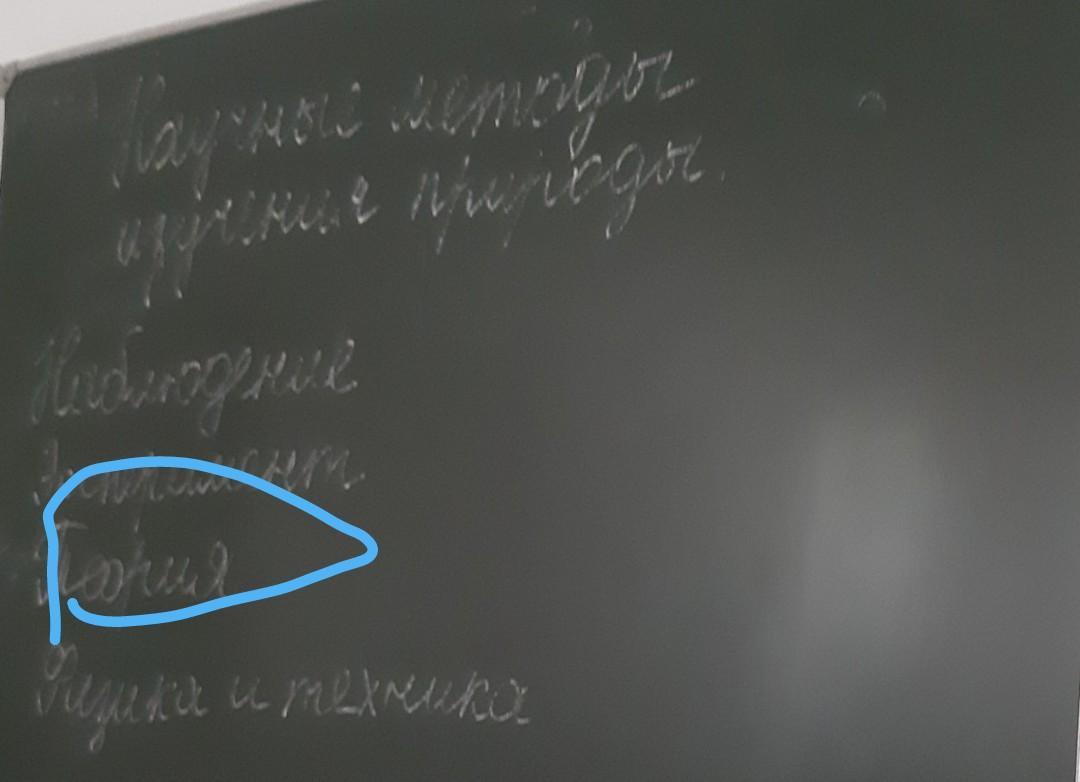 Научные методы
изучения природы.
Наблюдение
Эксперимент
Теория
Физика и техника